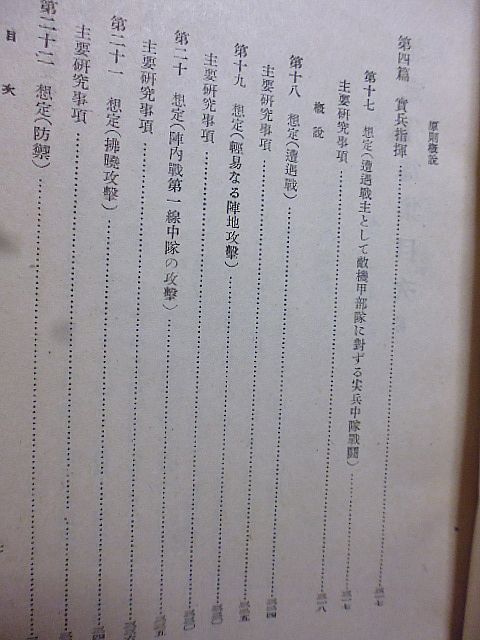 原則概説
第四篇 實兵指揮
第十七 想定(遭遇戰主として敵機甲部隊に對する尖兵中隊戰闘)
主要研究事項
概説
第十八 想定(遭遇戰)
主要研究事項
第十九 想定(輕易なる陣地攻擊)
主要研究事項
第二十 想定(陣內戰第一線中隊の攻擊)
主要研究事項
第二十一 想定(拂曉攻擊)
主要研究事項
第二十二 想定(防禦)
目次